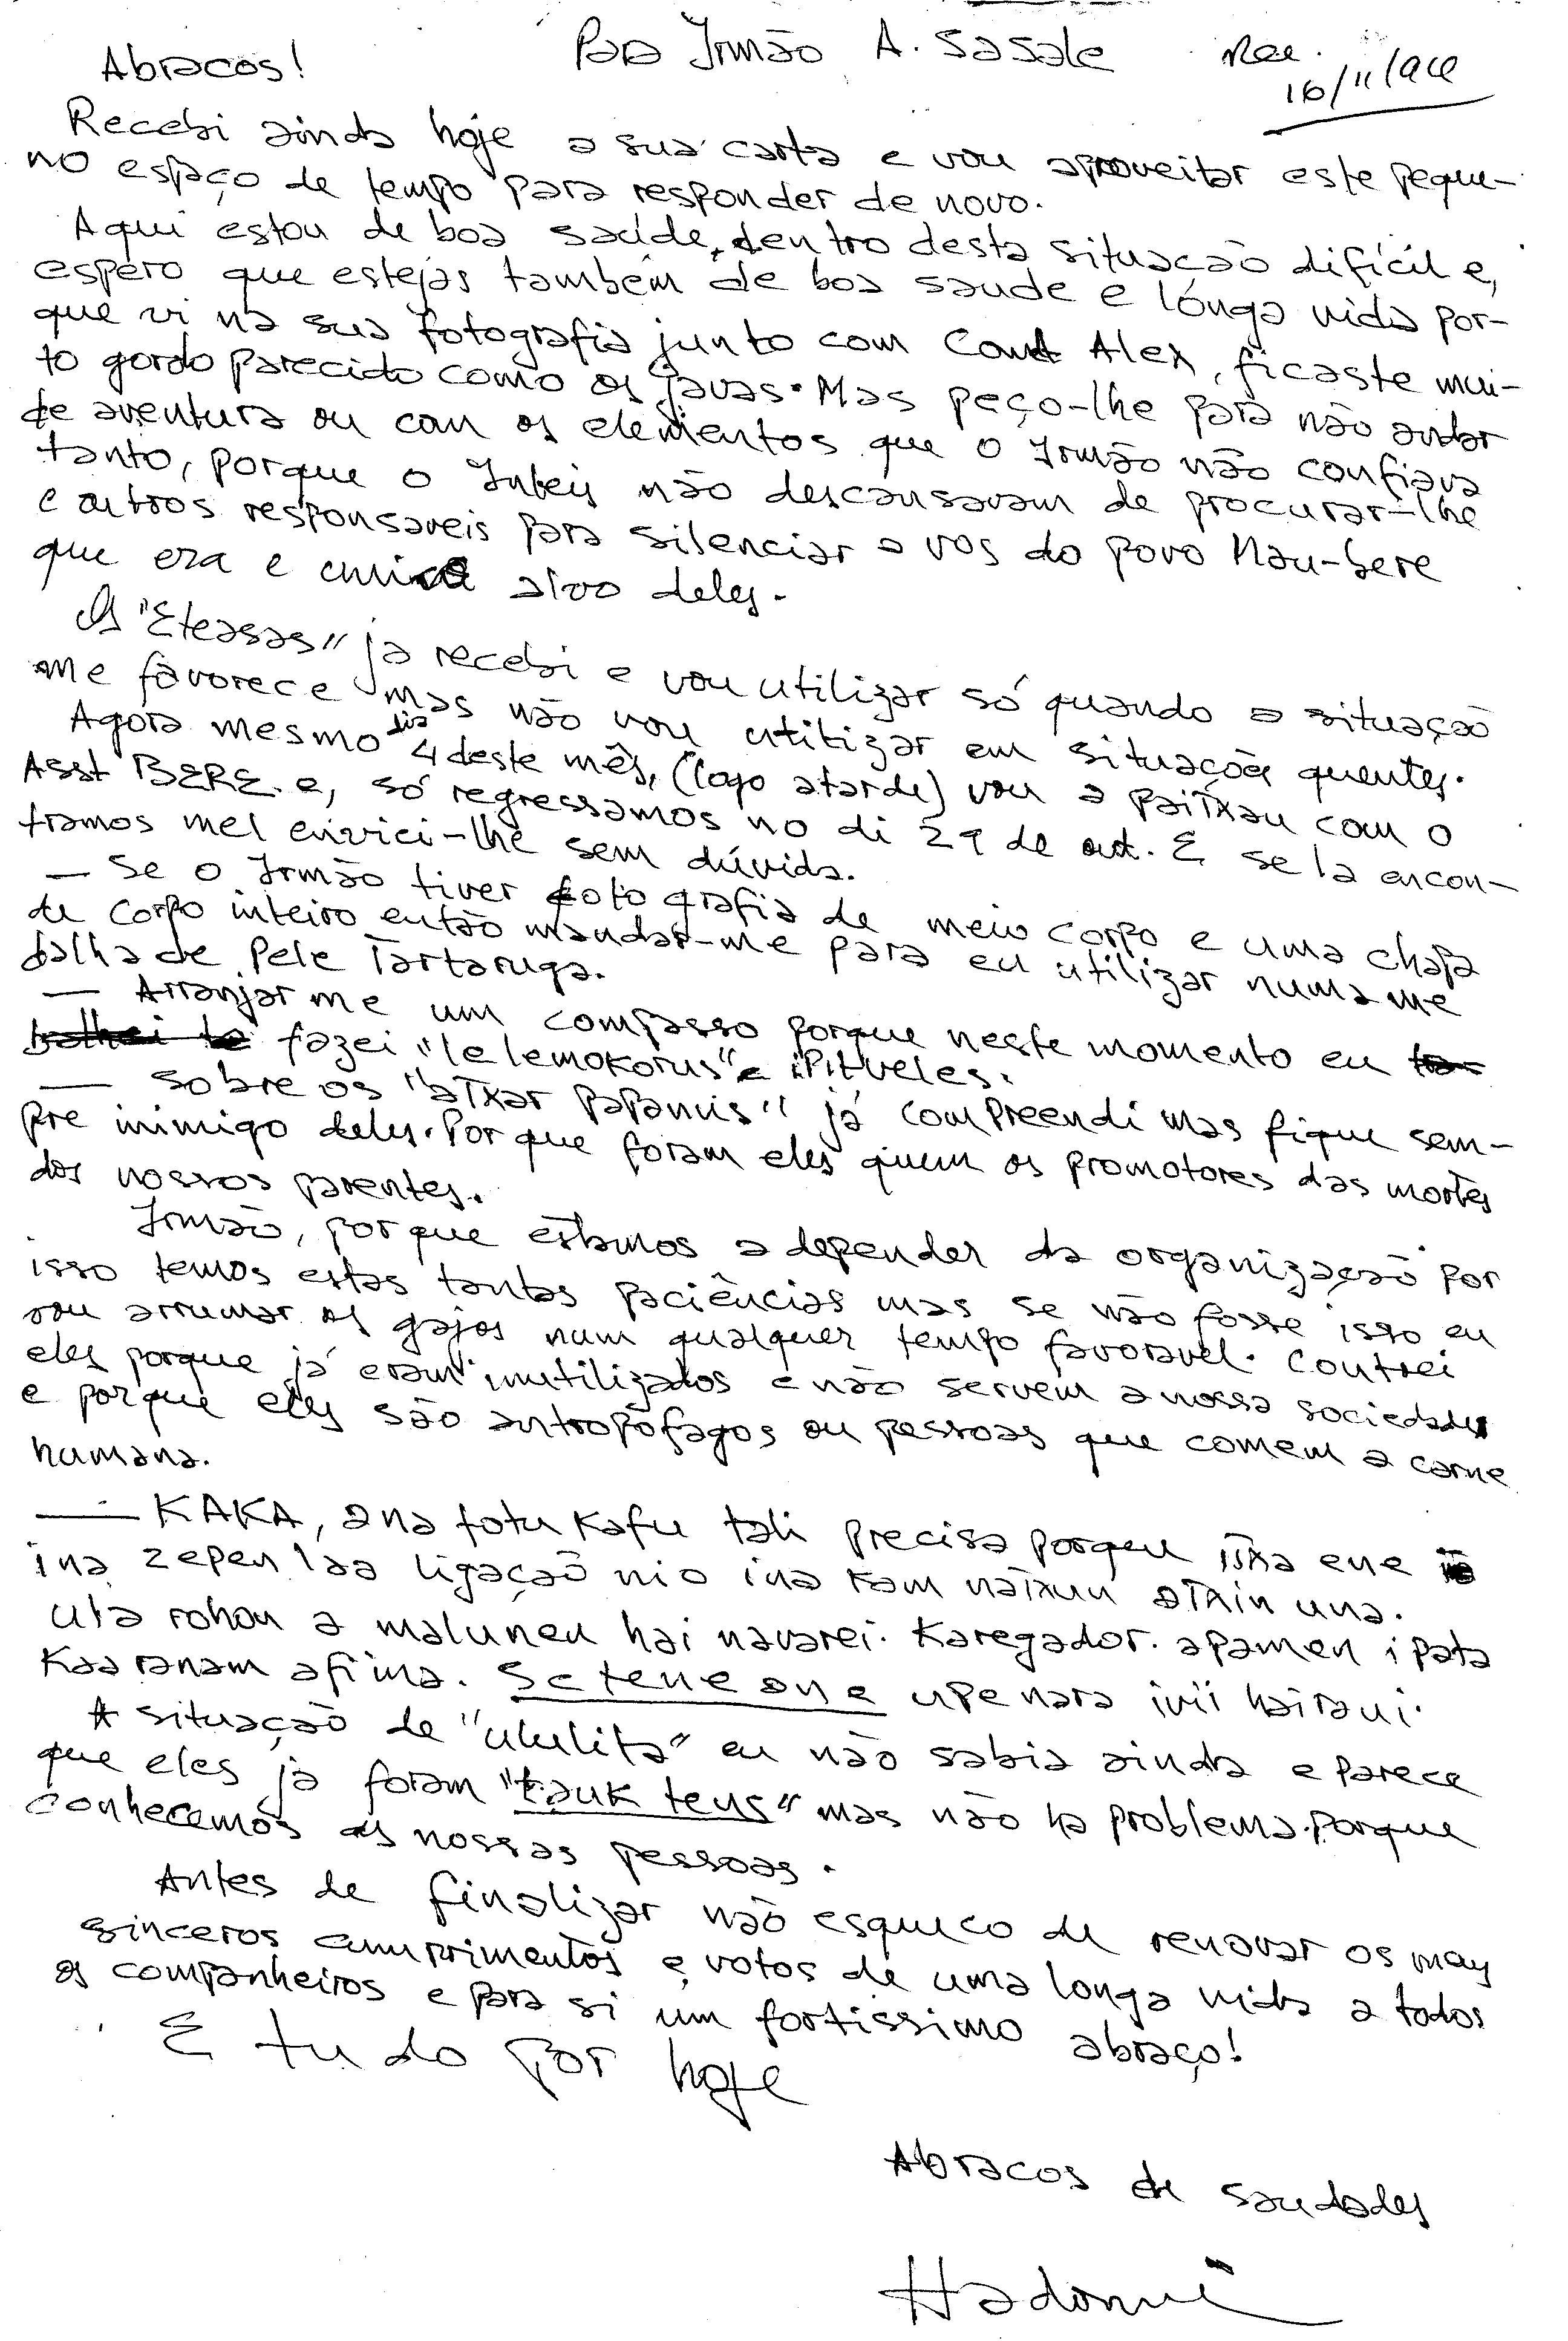 Para Irmão A. Sasale
Rec.
16/11/94
Abracos!
Recebi ainda hoje a sua carta e vou aproveitar este peque-
no espaço de tempo para responder de novo.
Aqui estou de boa saúde, dentro desta situação difícil e,
espero que estejas também de boa saude e longa vida por-
que vi na sua fotografia junto com Comdt Alex, ficaste mui-
to gordo parecido como os javas. Mas peço-lhe para não andar
de aventura ou com os elementos que o Irmão não confiava
tanto, porque o Inteis não descansavam de procurar-lhe
e outros responsaveis para silenciar a vos do povo Mau-bere
que era e alvo deles.
Os "Eteasas" ja recebi e vou utilizar só quando a situação
me favorece mas não vou utitizar em situações quentes.
Agora mesmo dia 4 deste mês, (logo atarde) vou a paitxau com o
Asst BERE. e, só regressamos no di 29 de out. E se la encon-
tramos mel envici-lhe sem dúvida.
— Se o Irmão tiver foto grafia de meio corpo e uma chapa
de corpo inteiro então mandar-me para eu utilizar numa me
dalha de pele Tartaruga.
— Arranjar me um compasso porque neste momento eu
fazei "lelemokorus" e "Pitveles.
— Sobre os "atxar papanus" já compreendi mas fique sem-
pre inimigo deles. Por que foram eles quem os promotores das mortes
dos nossos parentes.
Irmão, por que estamos a depender da organização por
isso temos estas tantas paciências mas se não fosse isso eu
vou arrumar os gajos num qualquer tempo favoravel. Contrei
eles porque já eram inutilizados e não servem a nossa sociedade
e porque eles são antropófagos ou pessoas que comem a carne
humana.
— KAKA, ana fotu kafu tali precisa porqeu itxa ene
ina zepen laa ligação nio ina ram natxun atxin una.
uta rohou a maluneu hai navarei. Karegador. apamen i pata
Kaaranam afina. Setene one upe nara ivii hairaui.
A situação de "ululita" eu não sabia ainda e parece
que eles já foram "tauk teus" mas não ha problema. Porque
conhecemos as nossas pessoas.
Antes de finalizar não esqueco de renovar os meus
sinceros cumprimentos e votos de uma longa vida a todos
os companheiros e para si um fortissimo abraço!
E tudo por hoje
Abracos de saudades
Hadomi